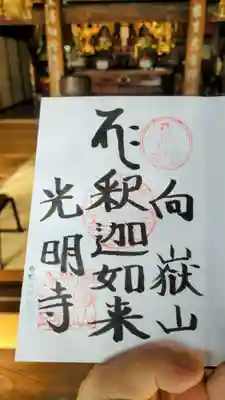 向嶽山
釈迦如来
光明寺